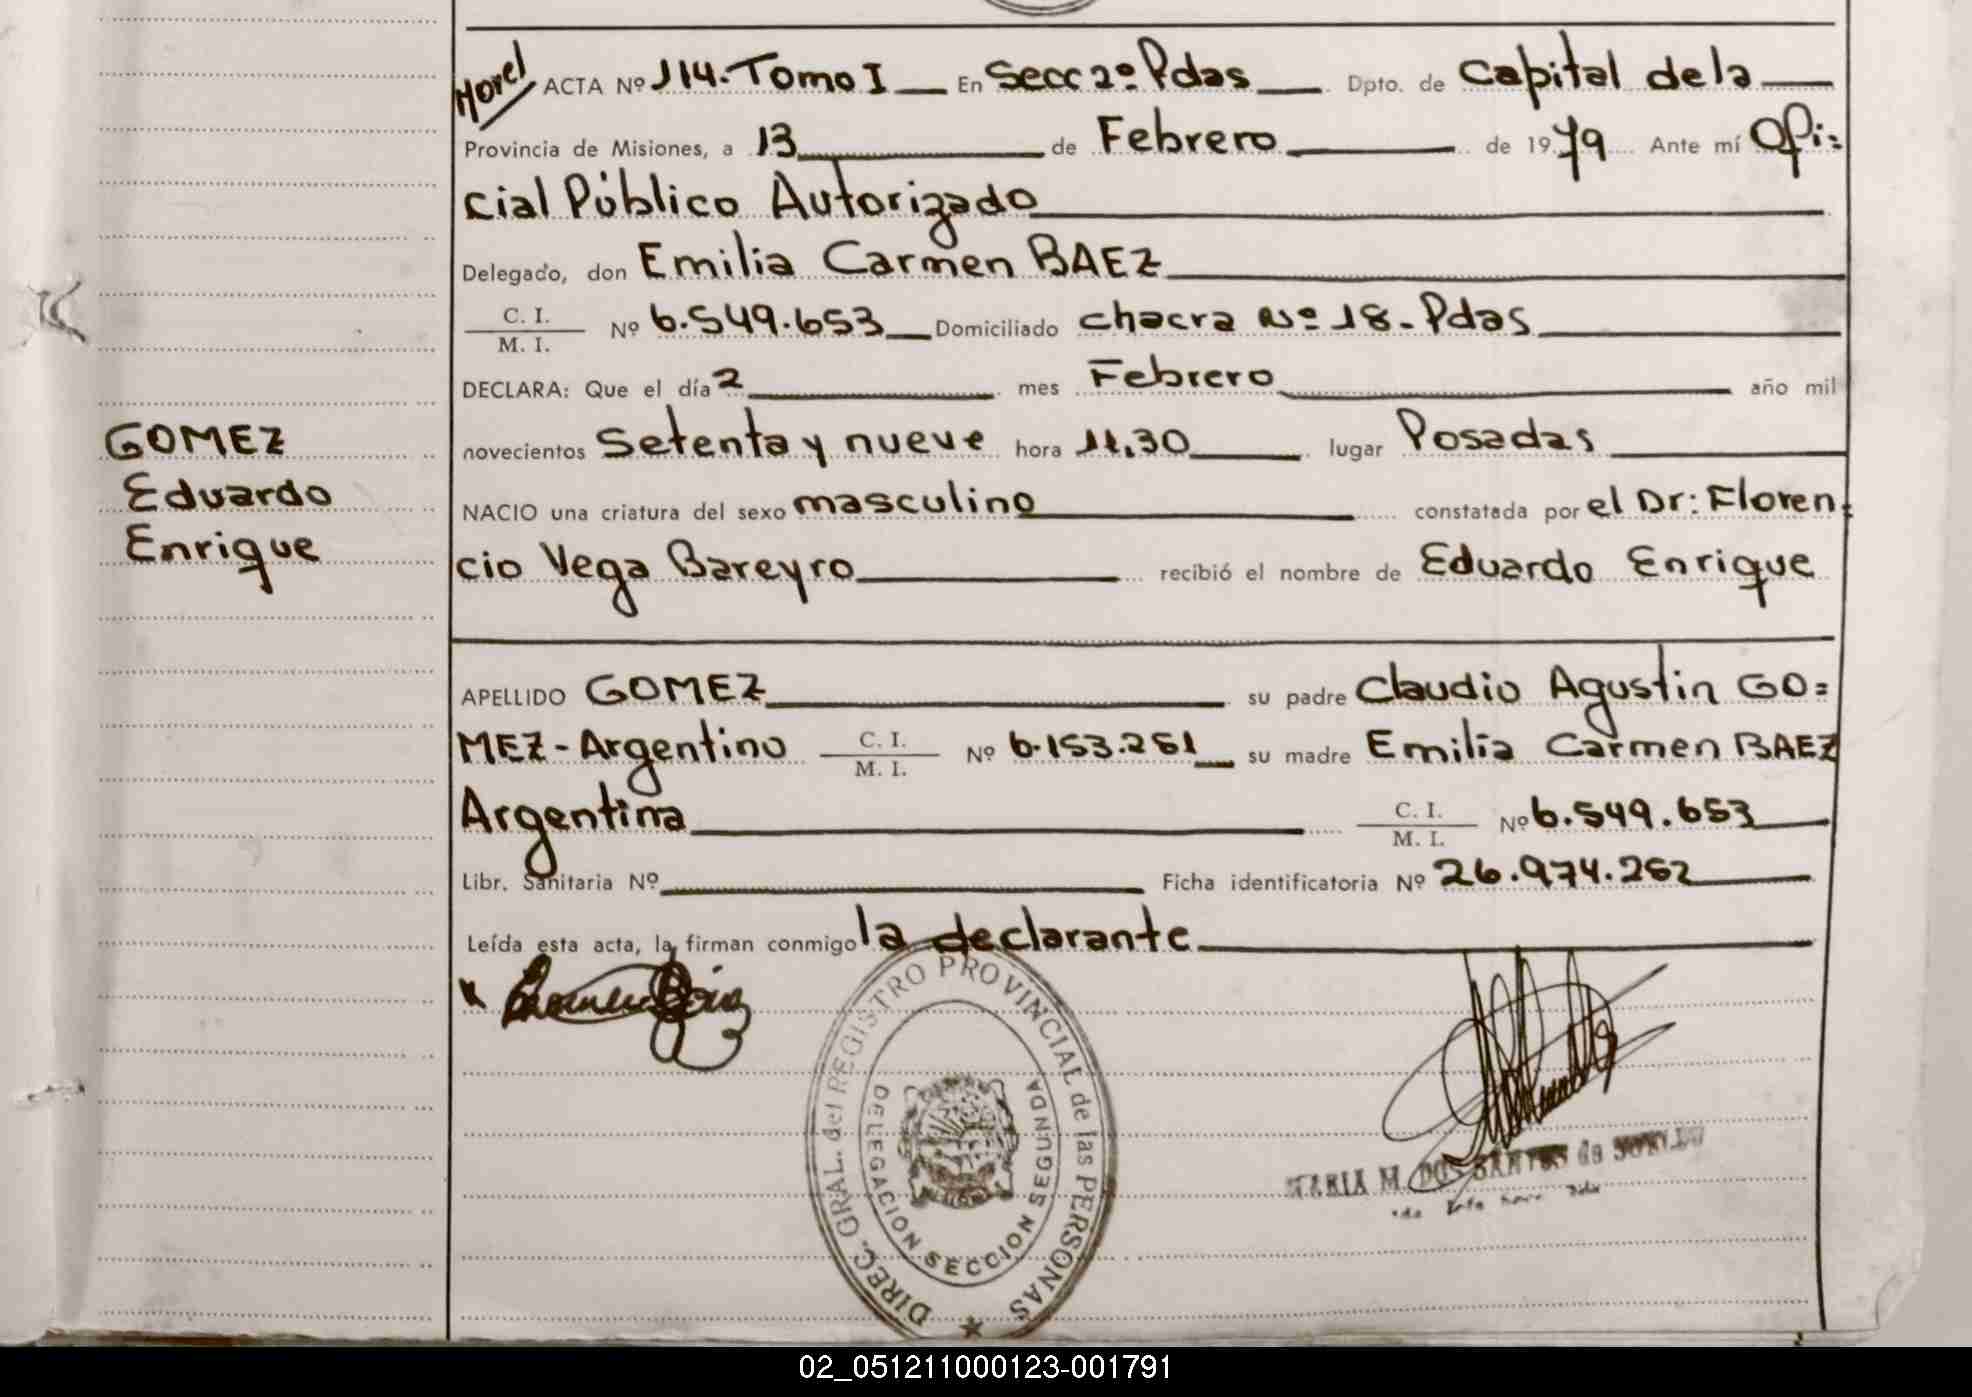 Morel ACTA Nº 114. Tomo I En Secc 2º Pdas Dpto. de Capital de la
Provincia de Misiones, a 13 de Febrero de 1979 Ante mí Ofi=
cial Público Autorizado
Delegado, don Emilia Carmen BAEZ
C. I.
M. I. Nº 6.549.653 Domiciliado chacra Nº 18 - Pdas
DECLARA: Que el día 2 mes Febrero año mil
novecientos Setenta y nueve hora 11,30 lugar Posadas
NACIO una criatura del sexo masculino constatada por el Dr: Floren=
cio Vega Bareyro recibió el nombre de Eduardo Enrique
GOMEZ
Eduardo
Enrique
APELLIDO GOMEZ su padre Claudio Agustin GO=
MEZ - Argentino C. I. M. I. Nº 6.153.251 su madre Emilia Carmen BAEZ
Argentina C. I. M. I. Nº 6.549.653
Libr. Sanitaria Nº Ficha identificatoria Nº 26.974.252
Leída esta acta, la firman conmigo la declarante
DIREC. GRAL. del REGISTRO PROVINCIAL de las PERSONAS
DELEGACION SECCION SEGUNDA
MARIA M. DOS SANTOS de
02_051211000123-001791